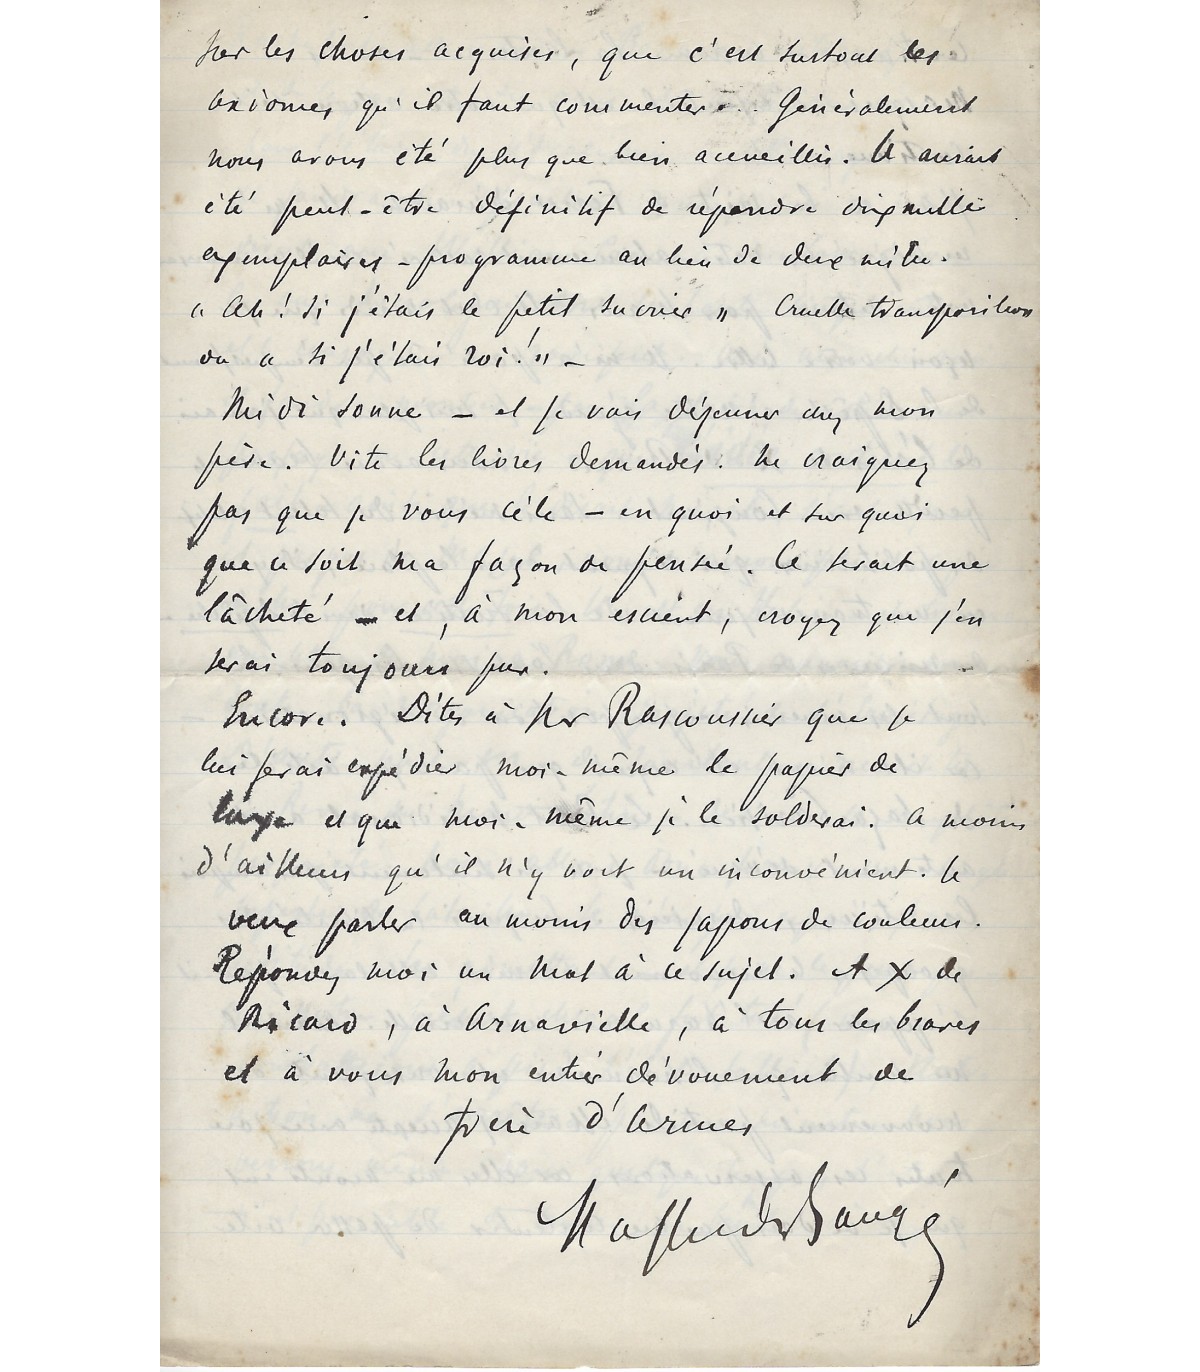 par les choses acquises, que c'est surtout les
axiomes qu'il faut commenter... Généralement
nous avons été plus que bien accueillis. Il aurait
été peut-être définitif de répandre dix mille
exemplaires-programme au lieu de deux mille.
" Ah ! Si j'étais le petit " Cruelle transposition
du " Si j'étais roi ! " -
Midi sonne - et je vais déjeuner chez mon
père. Vite les livres demandés. Ne craignez
pas que je vous cèle - en quoi et sur quoi
que ce soit ma façon de pensée. Ce serait une
lâcheté - et, à mon escient, croyez que j'en
serai toujours pur.
Encore. Dites à Rascoussier que je
lui ferai expédier moi-même le papier de
luxe et que moi-même je le solderai. A moins
d'ailleurs qu'il n'y voit un inconvénient. Je
veux parler au moins des japons de couleurs.
Répondez moi un mot à ce sujet. A X de
Ricard, à Arnavielle, à tous les braves
et à vous mon entier dévouement de
frère d'Armes